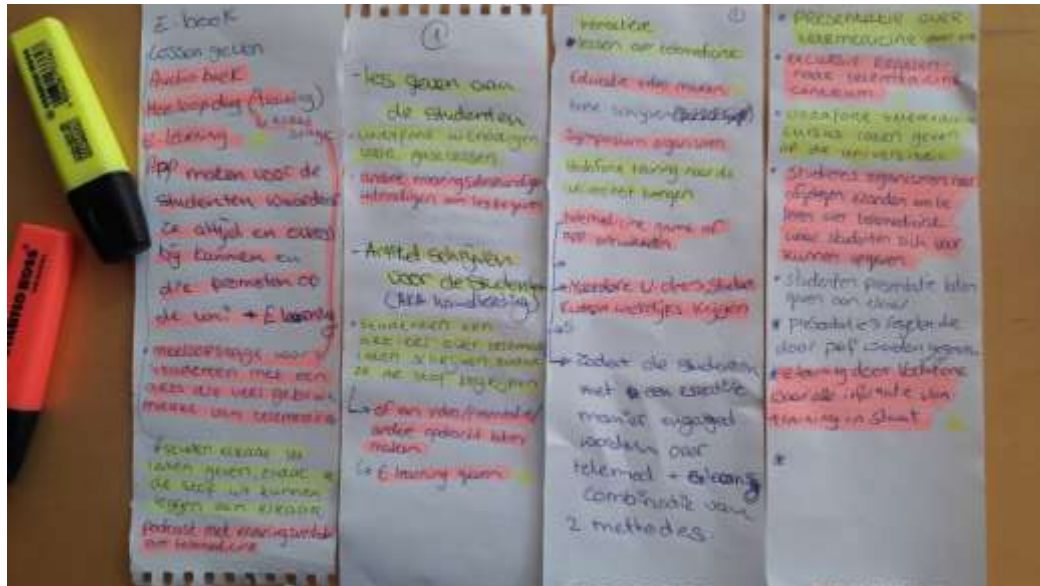 E-book
Lessen geven
Audio boek
Meeloopdag (training)
E-learning
App maken voor de
studenten waardoor
ze altijd en overal
bij kunnen en
die promoten op
de uni + E learning
meeloopstage voor
studenten met een
arts die veel gebruik
maakt van telemedicine
laten geven zodat ze
de stof uit kunnen
leggen aan elkaar
Podcast met
over telemedicine
①
- les geven aan
de studenten
Vodafone uitnodigen
voor gastlessen
andere ervaringsdeskundige
uitnodigen om les te geven
- Artikel schrijven
voor de studenten
(handleiding)
studenten een
artikel over telemed
laten schrijven zodat
ze de stof begrijpen
of een video/promotie/
andere opdracht laten
maken
E-learning geven
①
Interactieve
lessen over telemedicine
Educatie video maken
Symposium organiseren
Vodafone training naar de
universiteit brengen
telemedicine game of
app ontwikkelen
→ Meerdere
kunnen krijgen
→ Zodat de studenten
met een
manier engaged
worden over
telemed + E-learning
combinatie van
2 methodes.
• PRESENTATIE OVER
TELEMEDICINE
• EXCURSIE
NAAR TELEMEDICINE
CENTRUM
• VODAFONE TELEMEDICINE
CURSUS LATEN GEVEN
OP DE UNIVERSITEIT
• Studiereis organiseren naar
afgelegen eilanden om te
leren over telemedicine
waar studenten zich voor
kunnen opgeven
• Studenten presentatie laten
geven aan elkaar
• presentaties
door prof worden gegeven
• E-learning door Vodafone
waar alle informatie van
training in staat
STABILO BOSS